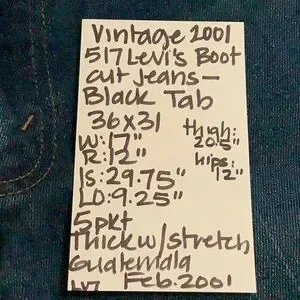 Vintage 2001
517 Levi's Boot
cut jeans-
Black Tab
36x31
W:17"
R:12"
IS:29.75"
LO:9.25"
thigh:
20.5"
hips:
12"
5 pkt
Thick w/stretch
Guatemala
Feb. 2001